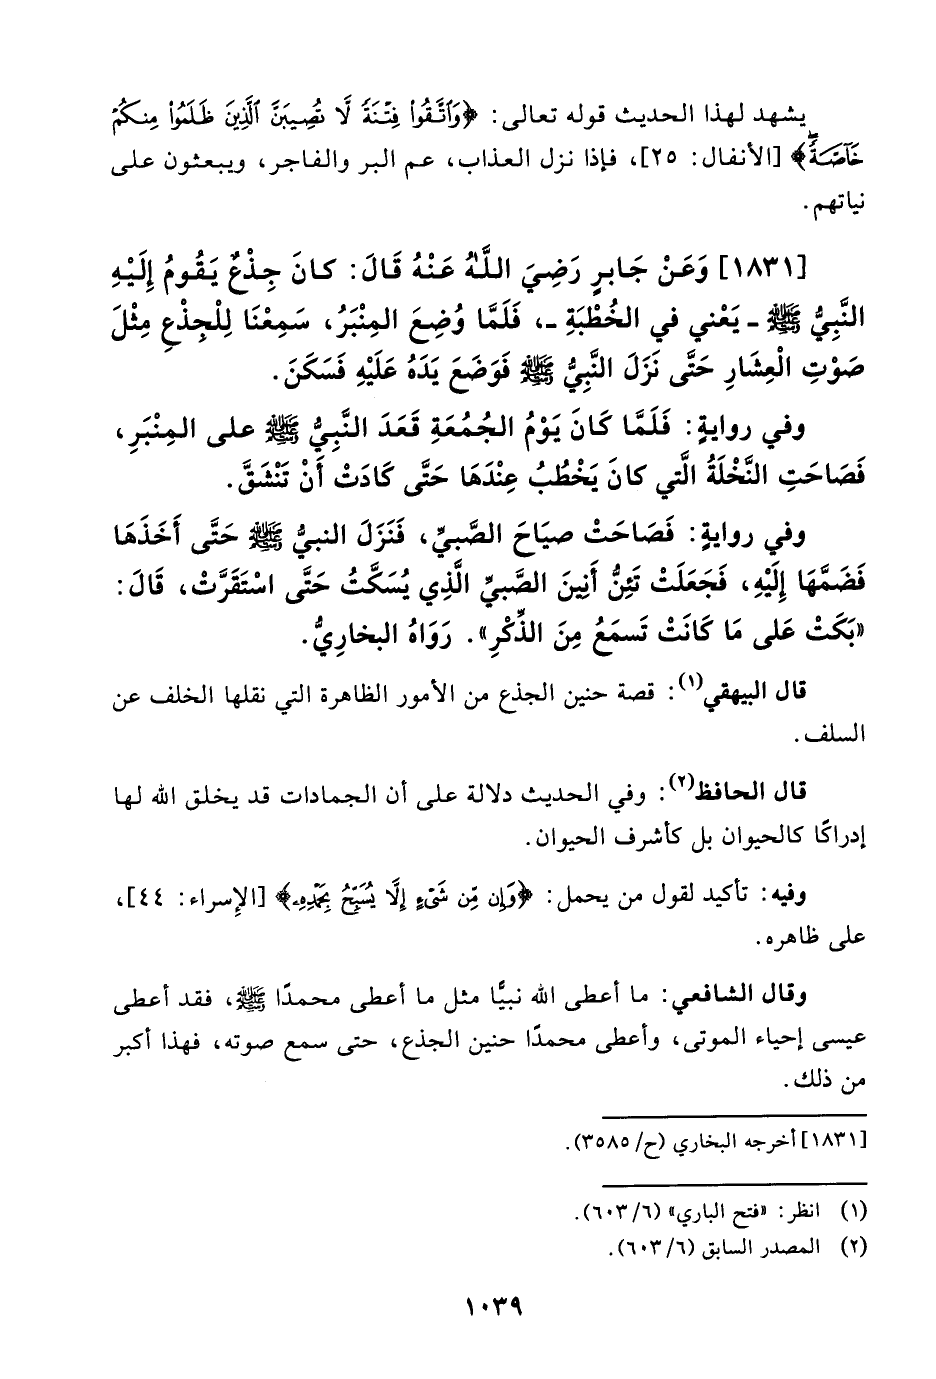 يشهد لهذا الحديث قوله تعالى: ﴿وَٱتَّقُوا۟ فِتْنَةً لَّا تُصِيبَنَّ ٱلَّذِينَ ظَلَمُوا۟ مِنكُمْ
خَآصَّةً ۖ﴾ [الأنفال: ٢٥]، فإذا نزل العذاب، عم البر والفاجر، ويبعثون على
نياتهم.
[١٨٣١] وَعَنْ جَابرٍ رَضِيَ اللَّهُ عَنْهُ قَالَ: كانَ جِذْعٌ يَقُومُ إِلَيْهِ
النَّبِيُّ ﷺ ـ يَعْني في الخُطْبَةِ ـ، فَلَمَّا وُضِعَ المِنْبَرُ، سَمِعْنَا لِلْجِذْعِ مِثْلَ
صَوْتِ الْعِشَارِ حَتَّى نَزَلَ النَّبِيُّ ﷺ فَوَضَعَ يَدَهُ عَلَيْهِ فَسَكَنَ.
وفي روايةٍ: فَلَمَّا كَانَ يَوْمُ الجُمُعَةِ قَعَدَ النَّبِيُّ ﷺ على المِنْبَرِ،
فَصَاحَتِ النَّخْلَةُ الَّتي كانَ يَخْطُبُ عِنْدَهَا حَتَّى كَادَتْ أَنْ تَنْشَقَّ.
وفي روايةٍ: فَصَاحَتْ صيَاحَ الصَّبيِّ، فَنَزَلَ النبيُّ ﷺ حَتَّى أَخَذَهَا
فَضَمَّهَا إِلَيْهِ، فَجَعَلَتْ تَئِنُّ أَنِينَ الصَّبيِّ الَّذِي يُسَكَّتُ حَتَّى اسْتَقَرَّتْ، قَالَ:
«بَكَتْ عَلى مَا كَانَتْ تَسمَعُ مِنَ الذِّكْرِ». رَوَاهُ البخاريُّ.
قال البيهقي(١): قصة حنين الجذع من الأمور الظاهرة التي نقلها الخلف عن
السلف.
قال الحافظ(٢): وفي الحديث دلالة على أن الجمادات قد يخلق الله لها
إدراكًا كالحيوان بل كأشرف الحيوان.
وفيه: تأكيد لقول من يحمل: ﴿وَإِن مِّن شَىْءٍ إِلَّا يُسَبِّحُ بِحَمْدِهِۦ﴾ [الإسراء: ٤٤]،
على ظاهره.
وقال الشافعي: ما أعطى الله نبيًّا مثل ما أعطى محمدًا ﷺ، فقد أعطى
عيسى إحياء الموتى، وأعطى محمدًا حنين الجذع، حتى سمع صوته، فهذا أكبر
من ذلك.
[١٨٣١] أخرجه البخاري (ح/ ٣٥٨٥).
(١) انظر: «فتح الباري» (٦/ ٦٠٣).
(٢) المصدر السابق (٦/ ٦٠٣).
١٠٣٩